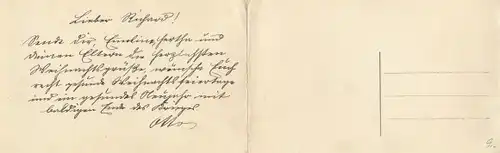 Lieber Richard!
Sende Dir, Emeline, Hertha und
deinen Eltern die herzlichsten
Weihnachtsgrüße, wünsche Euch
recht gesunde Weihnachtsfeiertage
und ein gesundes Neujahr mit
baldigen Ende des Krieges
Otto